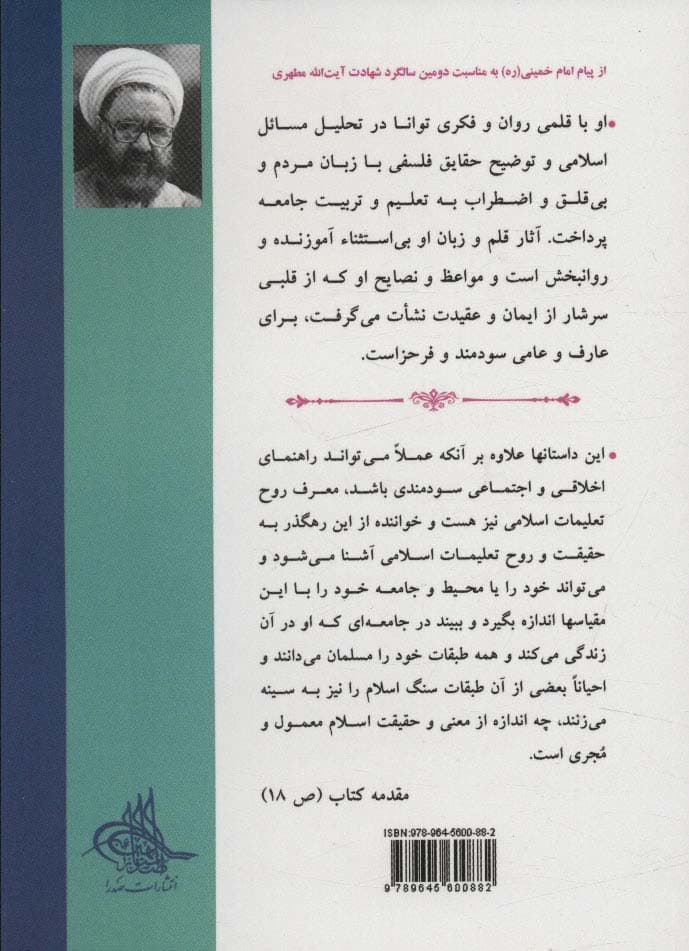 از پیام امام خمینی(ره) به مناسبت دومین سالگرد شهادت آیت‌الله مطهری
• او با قلمی روان و فکری توانا در تحلیل مسائل
اسلامی و توضیح حقایق فلسفی با زبان مردم و
بی‌قلق و اضطراب به تعلیم و تربیت جامعه
پرداخت. آثار قلم و زبان او بی‌استثناء آموزنده و
روانبخش است و مواعظ و نصایح او که از قلبی
سرشار از ایمان و عقیدت نشأت می‌گرفت، برای
عارف و عامی سودمند و فرحزاست.
• این داستانها علاوه بر آنکه عملاً می‌تواند راهنمای
اخلاقی و اجتماعی سودمندی باشد، معرف روح
تعلیمات اسلامی نیز هست و خواننده از این رهگذر به
حقیقت و روح تعلیمات اسلامی آشنا می‌شود و
می‌تواند خود را یا محیط و جامعه خود را با این
مقیاسها اندازه بگیرد و ببیند در جامعه‌ای که او در آن
زندگی می‌کند و همه طبقات خود را مسلمان می‌دانند و
احیاناً بعضی از آن طبقات سنگ اسلام را نیز به سینه
می‌زنند، چه اندازه از معنی و حقیقت اسلام معمول و
مُجری است.
مقدمه کتاب (ص ۱۸)
ISBN:978-964-5600-88-2
9 789645 600882
انتشارات صدرا